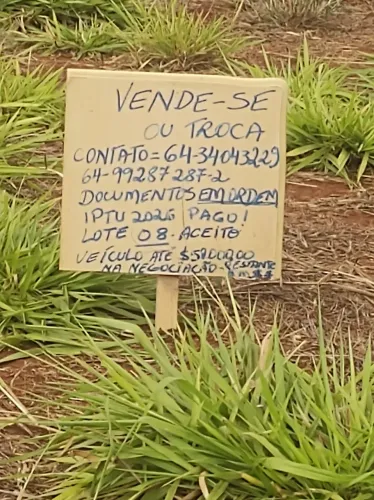 VENDE-SE
OU TROCA
CONTATO=64-34043229
64-99287287-2
DOCUMENTOS EM ORDEM
IPTU 2026 PAGO!
LOTE 08. ACEITO
VEÍCULO ATÉ $50.000,00
NA NEGOCIAÇÃO-RESTANTE
EM $$